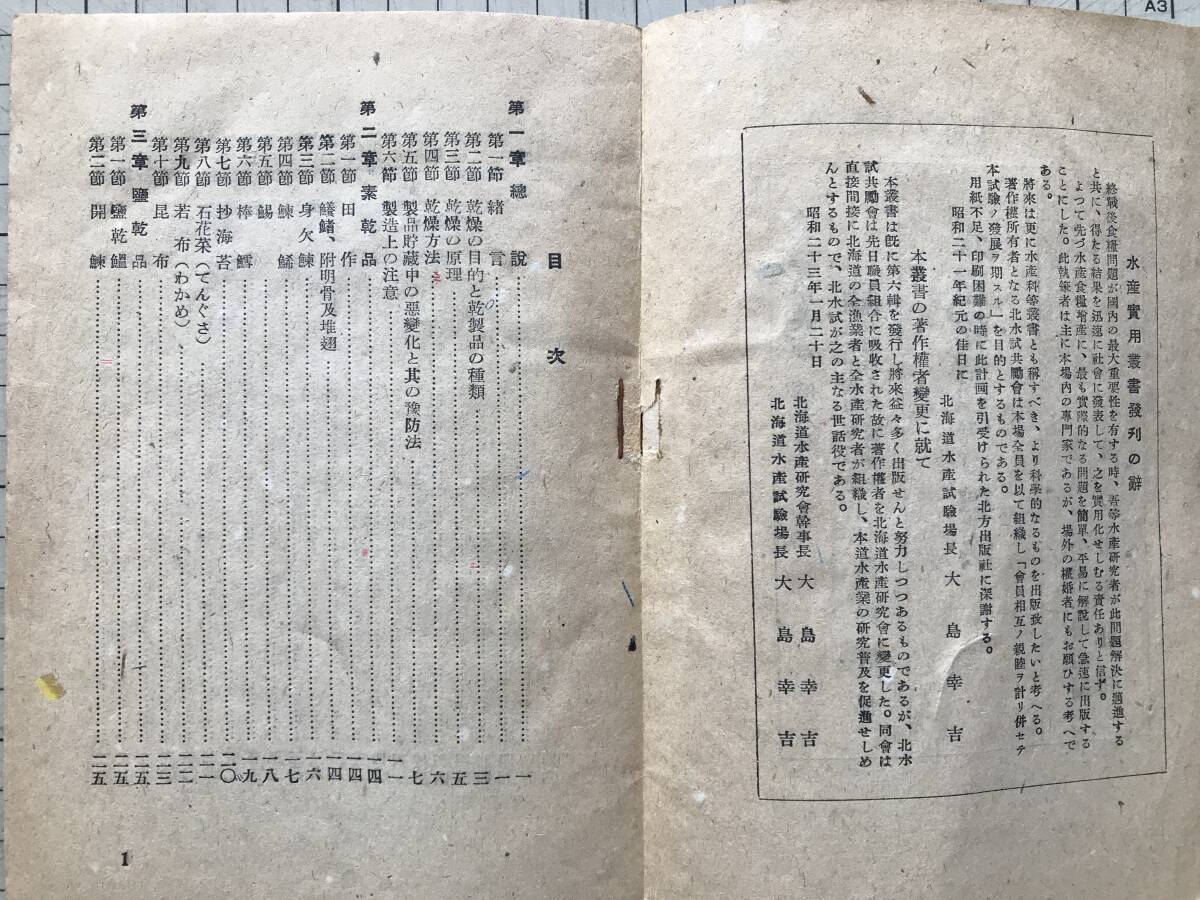 A3
水産實用叢書發刋の辭
終戰後食糧問題が國内の最大重要性を有する時、吾等水産研究者が此問題解決に邁進する
と共に、得たる結果を迅速に社會に發表して、之を實用化せしむる責任ありと信ず。
よつて先づ水産食糧增産に、最も實際的なる問題を簡單、平易に解説して急速に出版する
ことにした。此執筆者は主に本場内の專門家であるが、場外の權婚者にもお願ひする考へで
ある。
將來は更に水産科等叢書とも稱すべき、より科學的なるものを出版致したいと考へる。
著作權所有者となる北水試共勵會は本場全員を以て組織し「會員相互ノ親睦ヲ計リ併セテ
本試驗ノ發展ヲ期スル」を目的とするものである。
用紙不足、印刷困難の時に此計畫を引受けられた北方出版社に深謝する。
昭和二十一年紀元の佳日に
北海道水産試驗場長 大島幸吉
本叢書の著作權者變更に就て
本叢書は旣に第六輯を發行し將來益々多く出版せんと努力しつつあるものであるが、北水
試共勵會は先日職員組合に吸收された故に著作權者を北海道水産研究會に變更した。同會は
直接間接に北海道の全漁業者と全水産研究者が組織し、本道水産業の研究普及を促進せしめ
んとするもので、北水試が之の主なる世話役である。
昭和二十三年一月二十日
北海道水産研究會幹事長 大島幸吉
北海道水産試驗場長 大島幸吉
目次
第一章 總說…一
第一節 緖言…一
第二節 乾燥の目的と乾製品の種類…三
第三節 乾燥の原理…五
第四節 乾燥方法…六
第五節 製品貯藏中の惡變化と其の豫防法…七
第六節 製造上の注意…一一
第二章 素乾品…一四
第一節 田作…一四
第二節 鱶鰭、附明骨及堆翅…一四
第三節 身欠鰊…一六
第四節 鰊鯑…一七
第五節 鯣…一八
第六節 棒鱈…一九
第七節 抄海苔…二〇
第八節 石花菜(てんぐさ)…二一
第九節 若布(わかめ)…二二
第十節 昆布…二三
第三章 鹽乾品…二五
第一節 鹽乾鰮…二五
第二節 開鰊…二五
1